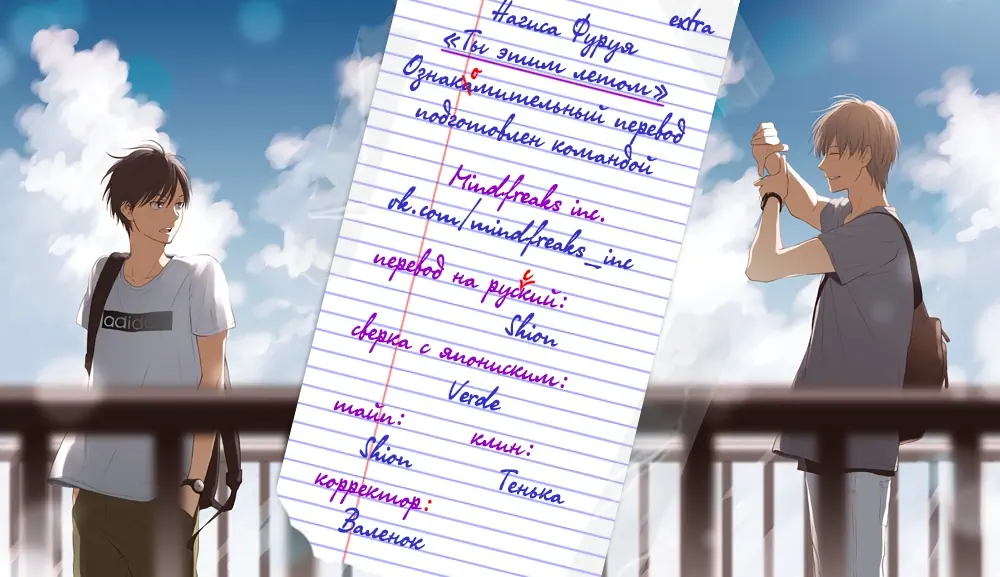 extra
Нагиса Фуруя
«Ты этим летом»
о
Ознакамительный перевод
подготовлен командой
Mindfreaks inc.
vk.com/mindfreaks_inc
с
перевод на руский:
Shion
сверка с япониским:
Verde
тайп:
клин:
Shion
Тенька
корректор:
Валенок
adid